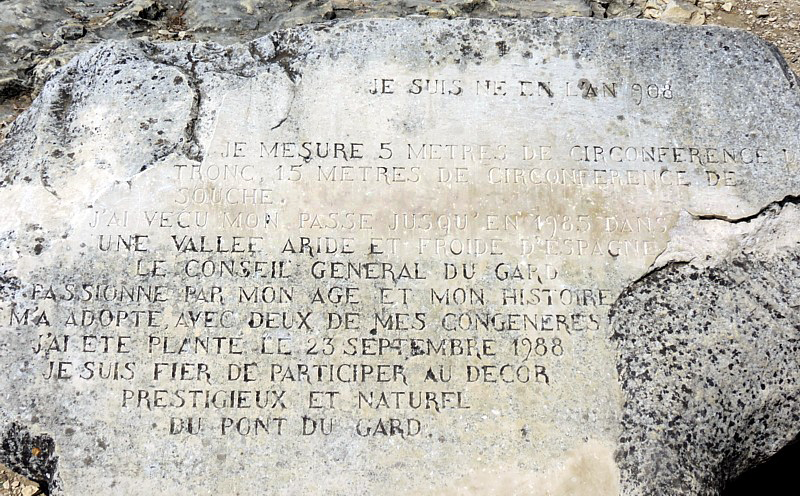 JE SUIS NE EN L'AN 908
JE MESURE 5 METRES DE CIRCONFERENCE
TRONC, 15 METRES DE CIRCONFERENCE DE
SOUCHE.
J'AI VECU MON PASSE JUSQU'EN 1985 DANS
UNE VALLEE ARIDE ET FROIDE D'ESPAGNE
LE CONSEIL GENERAL DU GARD
PASSIONNE PAR MON AGE ET MON HISTOIRE
M'A ADOPTE, AVEC DEUX DE MES CONGENERES
J'AI ETE PLANTE LE 23 SEPTEMBRE 1988
JE SUIS FIER DE PARTICIPER AU DECOR
PRESTIGIEUX ET NATUREL
DU PONT DU GARD.